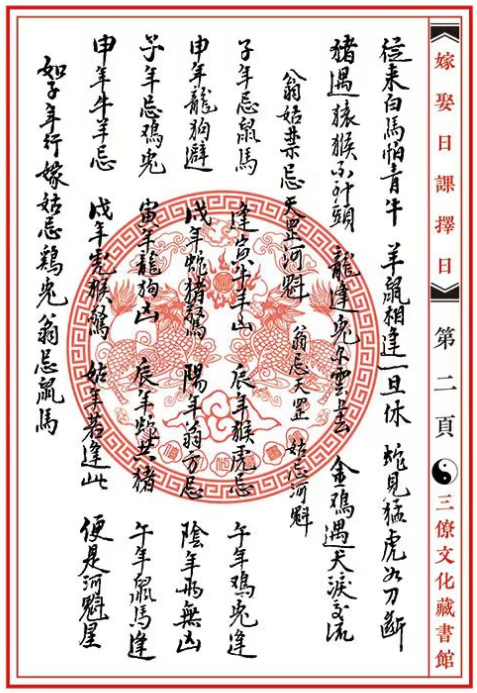 嫁娶日課擇日 第二頁 三僚文化藏書館
從来白馬怕青牛 羊鼠相逢一旦休 蛇見猛虎如刀斷
猪遇猿猴不到頭 龍逢兔尔雲上去 金鳮遇犬淚交流
翁姑禁忌 天罡河魁 翁忌天罡 姑忌河魁
子年忌鼠馬 逢寅牛羊凶 辰年猴虎忌 午年鳮兔逢
申年龍狗避 戌年蛇猪驚 陽年翁方忌 陰年却無凶
子年忌鸡兔 寅年龍狗凶 辰年蛇共猪 午年鼠馬逢
申年牛羊忌 戌年虎猴驚 姑年若逢此 便是河魁星
如子年行嫁姑忌鷄兔翁忌鼠馬